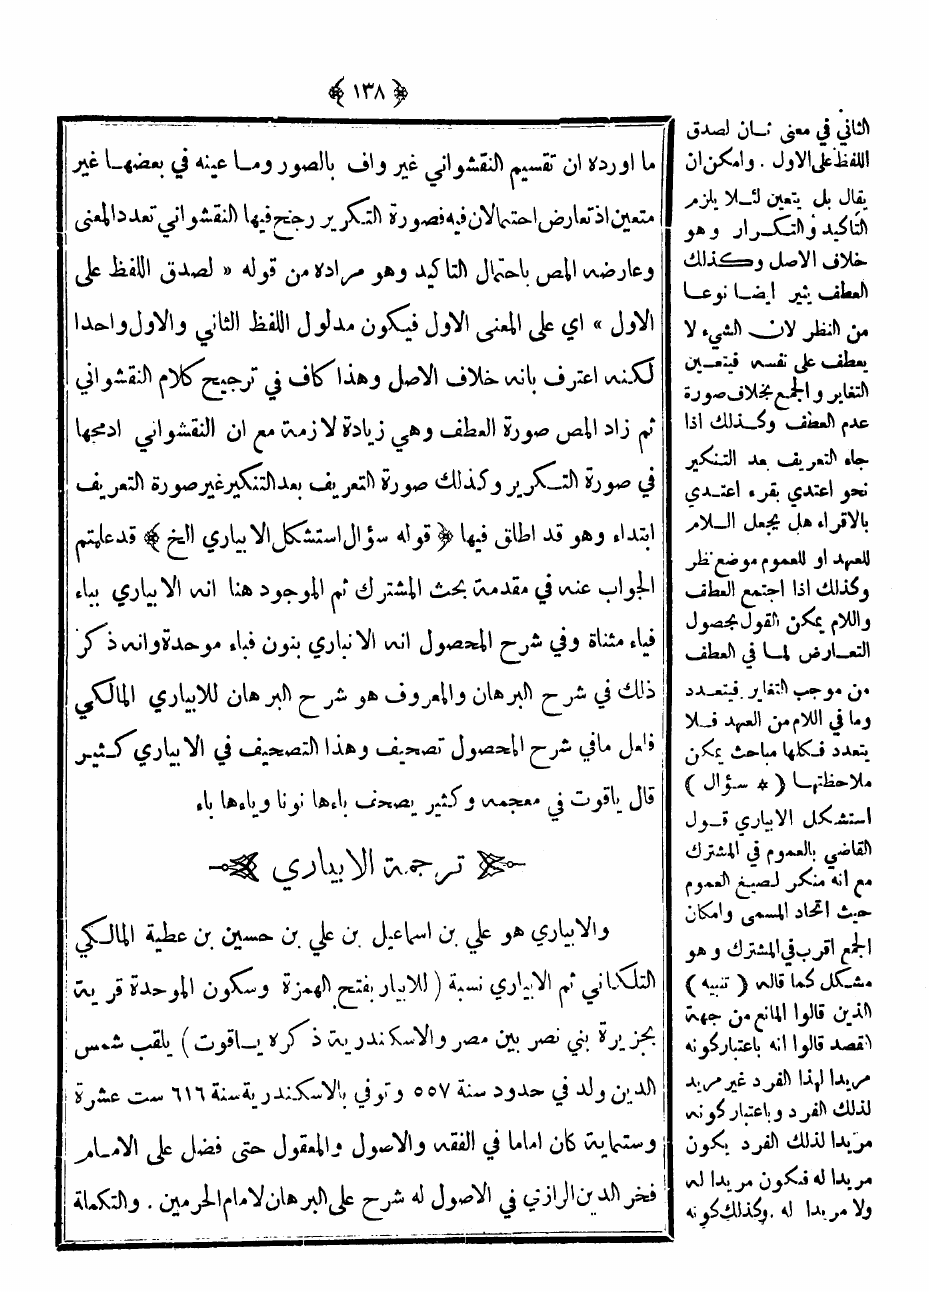 ﴿ ١٣٨ ﴾
ما اورده ان تقسيم النقشواني غير واف بالصور وما عينه في بعضها غير
متعين اذ تعارض احتمالان فيه فصورة التكرير رجح فيها النقشواني تعدد المعنى
وعارضه المص باحتمال التاكيد وهو مراده من قوله « لصدق اللفظ على
الاول » اي على المعنى الاول فيكون مدلول اللفظ الثاني والاول واحدا
لكنه اعترف بانه خلاف الاصل وهذا كاف في ترجيح كلام النقشواني
ثم زاد المص صورة العطف وهي زيادة لازمة مع ان النقشواني ادمجها
في صورة التكرير وكذلك صورة التعريف بعد التنكير غير صورة التعريف
ابتداء وهو قد اطلق فيها ﴿ قوله سؤال استشكل الابياري الخ ﴾ قد علمتم
الجواب عنه في مقدمة بحث المشترك ثم الموجود هنا انه الابياري بباء
فياء مثناة وفي شرح المحصول انه الانباري بنون فباء موحدة وانه ذكر
ذلك في شرح البرهان والمعروف هو شرح البرهان للابياري المالكي
فلعل مافي شرح المحصول تصحيف وهذا التصحيف في الابياري كثير
قال ياقوت في معجمه وكثير يصحف باءها نونا وياءها باء
ترجمة الابياري
والابياري هو علي بن اسماعيل بن علي بن حسين بن عطية المالكي
التلكاني ثم الابياري نسبة ( للابيار بفتح الهمزة وسكون الموحدة قرية
بجزيرة بني نصر بين مصر والاسكندرية ذكره ياقوت ) يلقب شمس
الدين ولد في حدود سنة ٥٥٧ وتوفي بالاسكندرية سنة ٦١٦ ست عشرة
وستماية كان اماما في الفقه والاصول والمعقول حتى فضل على الامام
فخر الدين الرازي في الاصول له شرح على البرهان لامام الحرمين . والتكملة
الثاني في معنى ثان لصدق
اللفظ على الاول . وامكن ان
يقال بل يتعين لئلا يلزم
التاكيد والتكرار وهو
خلاف الاصل وكذلك
العطف يثير ايضا نوعا
من النظر لان الشيء لا
يعطف على نفسه فيتعين
التغاير والجمع بخلاف صورة
عدم العطف وكذلك اذا
جاء التعريف بعد التنكير
نحو اعتدي بقرء اعتدي
بالاقراء هل يجعل اللام
للعهد او للعموم موضع نظر
وكذلك اذا اجتمع العطف
واللام يمكن القول بحصول
التعارض لما في العطف
من موجب التغاير فيتعدد
وما في اللام من العهد فلا
يتعدد فكلها مباحث يمكن
ملاحظتها ( * سؤال )
استشكل الابياري قول
القاضي بالعموم في المشترك
مع انه منكر لصيغ العموم
حيث اتحاد المسمى وامكان
الجمع اقرب في المشترك وهو
مشكل كما قاله ( تنبيه )
الذين قالوا المانع من جهة
القصد قالوا انه باعتبار كونه
مريدا لهذا الفرد غير مريد
لذلك الفرد وباعتبار كونه
مريدا لذلك الفرد يكون
مريدا له فيكون مريدا له
ولا مريدا له . وكذلك كونه